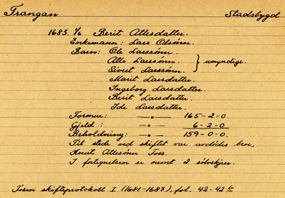 Trangan Stadsbygd
1683. 1/6 Berit Allesdatter.
Enkemann: Lars Olsønn.
Barn: Ole Larssønn.
Alle Larssønn. } umyndige.
Sivert Larssønn.
Marit Larsdatter.
Ingeborg Larsdatter.
Berit Larsdatter.
Ide Larsdatter.
Formue: — 165-2-0
Gjeld: — 6-2-0
Beholdning: — 159-0-0.
Til stede ved skiftet var avdødes bror,
Knut Allesønn Foss.
I fortegnelsen er nevnt 2 sølvskjeer.
Fosen skifteprotokoll I (1681-1687), fol. 42-42 b